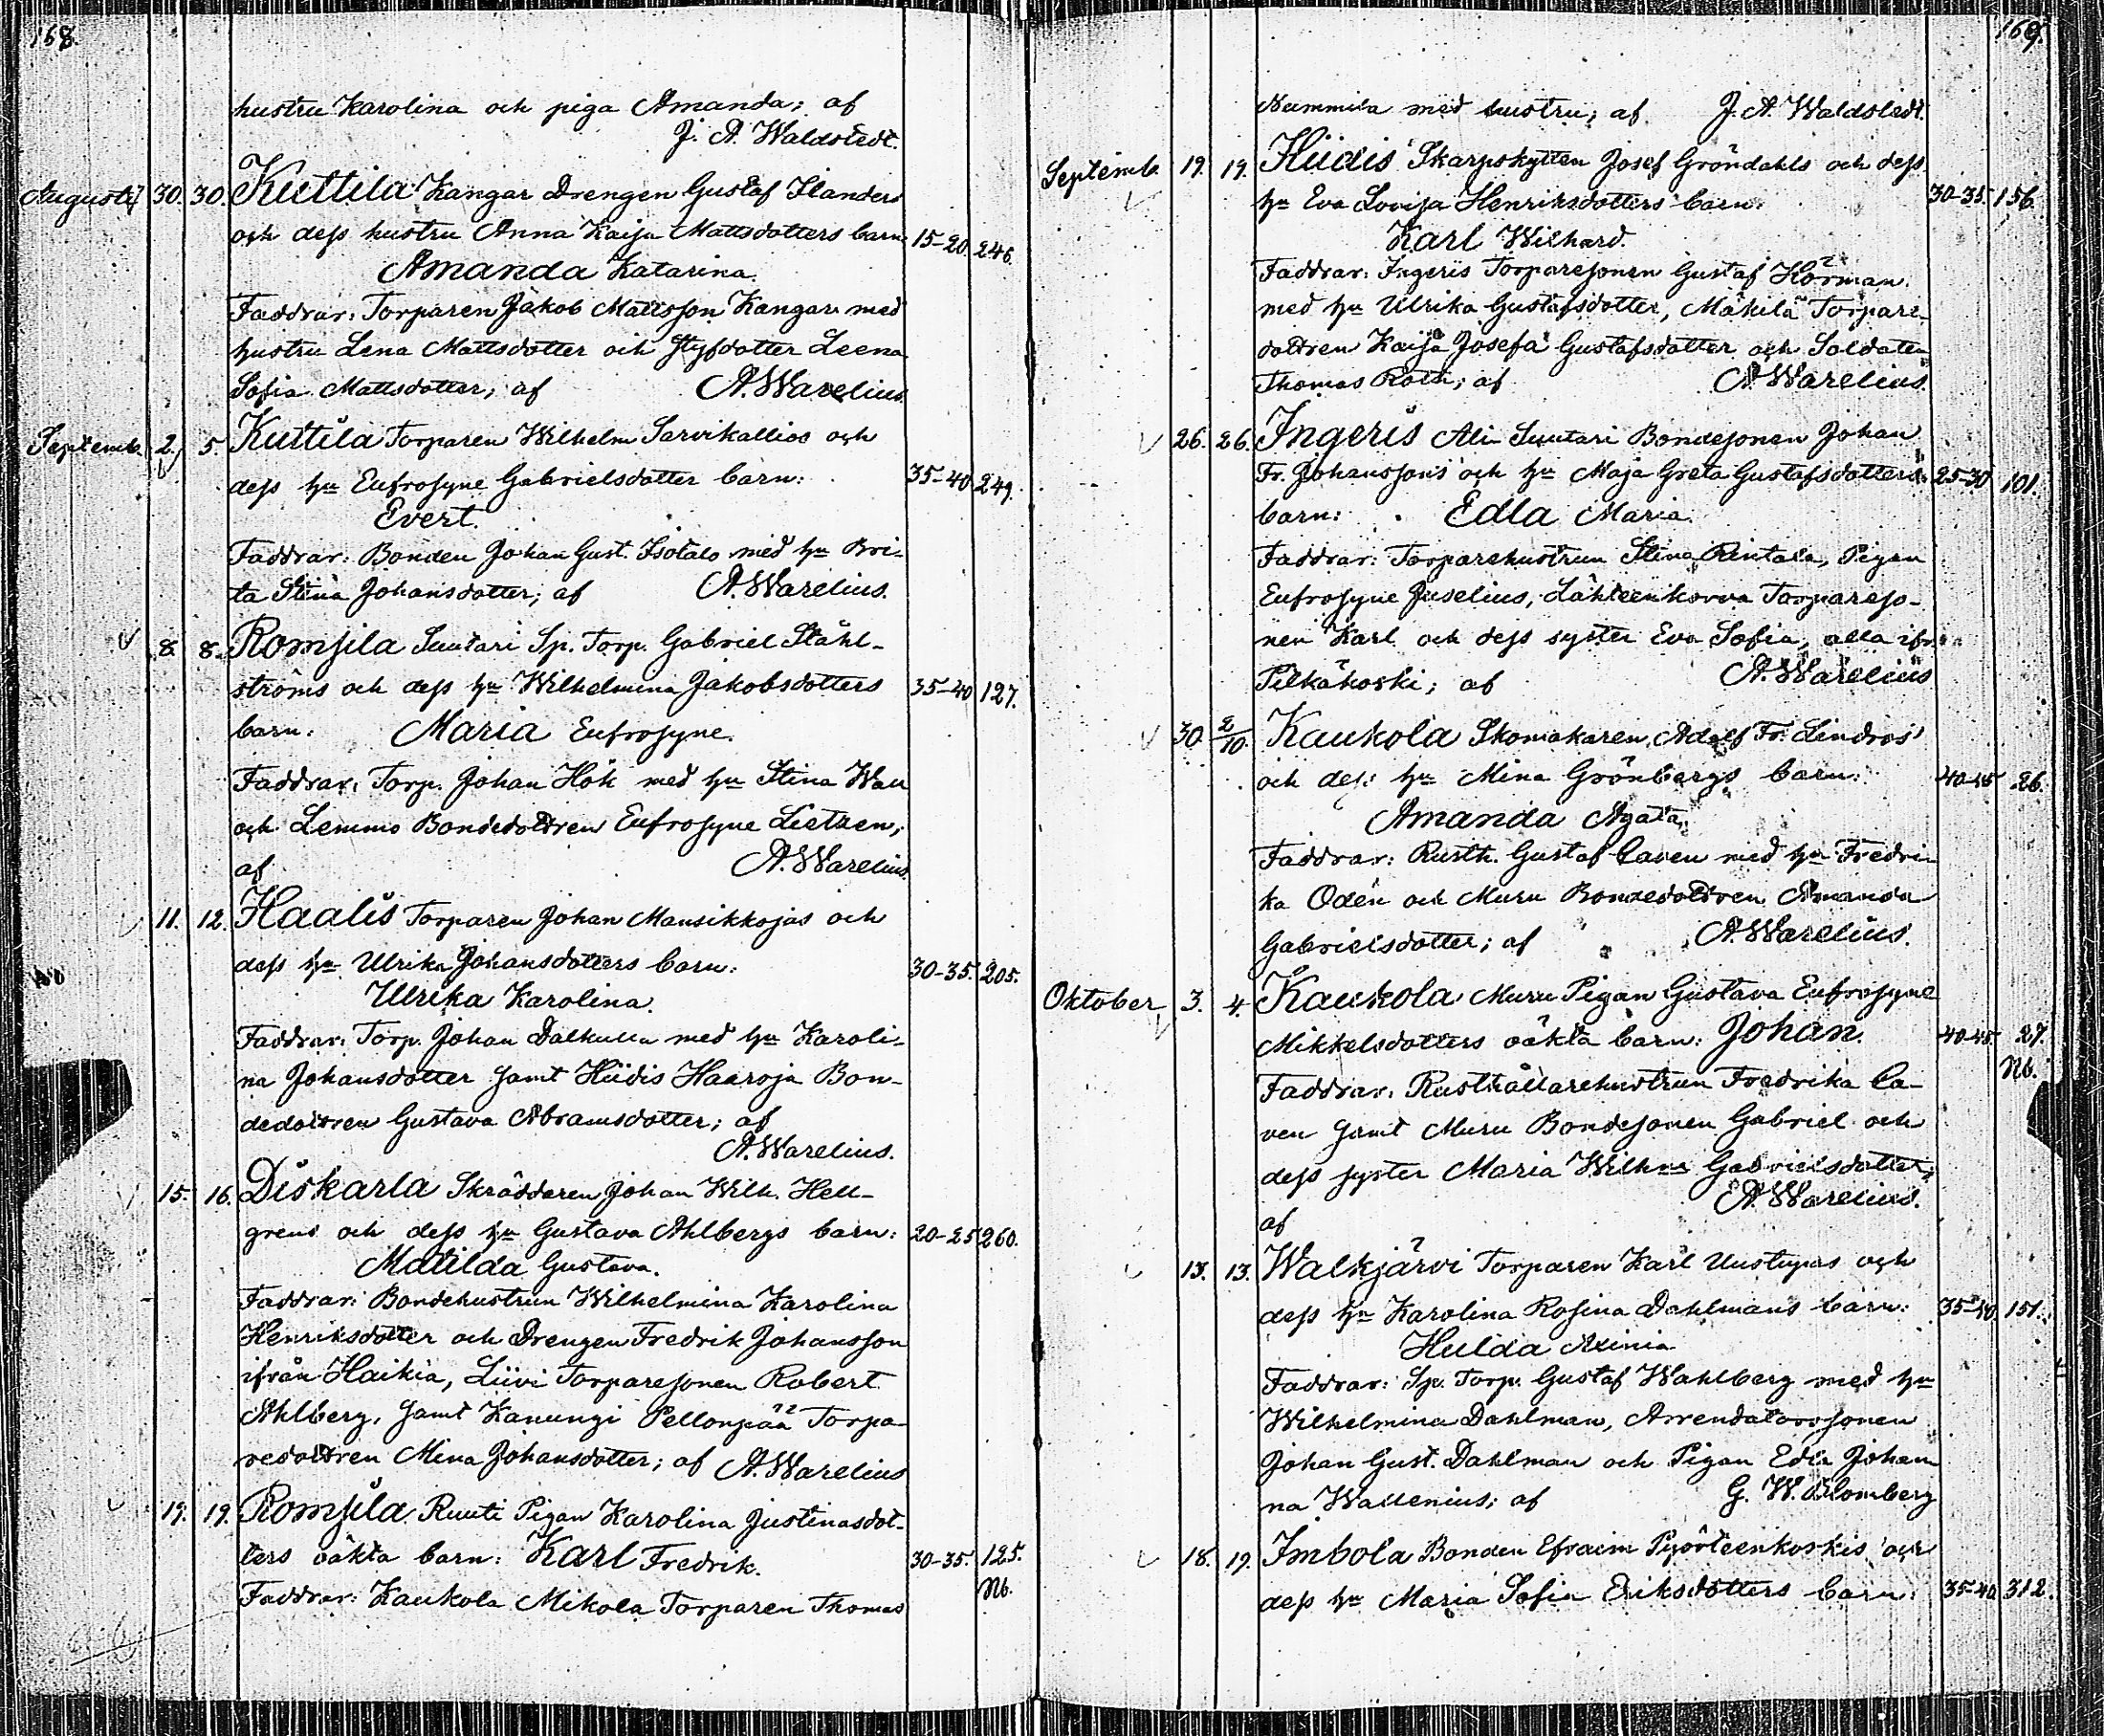 168.
hustru Karolina och piga Amanda; af
J. A. Waldstedt.
Augusti 30. 30. Kuttila Kangar Drengen Gustaf Ilanders
och dess hustru Anna Kaija Mattsdotters barn: 15-20. 246.
Amanda Katarina.
Faddrar: Torparen Jakob Mattsson Kangar med
hustru Lena Mattsdotter och styfdotter Leena
Sofia Mattsdotter; af A. Warelius.
Septemb. 2. 5. Kuttila Torparen Wilhelm Sarvikallios och
dess hu Eufrosyne Gabrielsdotter barn: 35-40 249.
Evert.
Faddrar: Bonden Johan Gust. Isotalo med hu Bri-
ta Stina Johansdotter; af A. Warelius.
8. 8. Romsila Suutari Sp. Torp. Gabriel Ståhl-
ströms och dess hu Wilhelmina Jakobsdotters 35-40 127.
barn: Maria Eufrosyne.
Faddrar: Torp. Johan Hök med hu Stina Wall
och Lemmo Bondedottren Eufrosyne Lietzen;
af A. Warelius.
11. 12. Haalis Torparen Johan Mansikkojas och
dess hu Ulrika Johansdotters barn: 30-35. 205.
Ulrika Karolina.
Faddrar: Torp. Johan Dalkulla med hu Karoli-
na Johansdotter samt Hiidis Haaroja Bon-
dedottren Gustava Abramsdotter; af
A. Warelius.
15. 16. Diskarla Skräddaren Johan Wilh. Hell-
grens och dess hu Gustava Ahlbergs barn: 20-25 260.
Matilda Gustava.
Faddrar: Bondehustrun Wilhelmina Karolina
Henriksdotter och Drengen Fredrik Johansson
ifrån Haikia, Liivi Torparesonen Robert
Ahlberg, samt Kanungi Pellonpää Torpa-
redottren Mina Johansdotter; af A. Warelius
19. 19. Romsila Ruuti Pigan Karolina Justinasdot-
ters oäkta barn: Karl Fredrik. 30-35. 125.
Nb.
Faddrar: Kaukola Mikola Torparen Thomas
169.
Nummila med hustru; af J. A. Waldstedt.
Septemb. 19. 19. Hiidis Skarpskytten Josef Gröndahls och dess
hu Eva Lovisa Henriksdotters barn: 30-35. 156.
Karl Wilhard.
Faddrar: Ingeris Torparesonen Gustaf Hörman
med hu Ulrika Gustafsdotter, Mäkilä Torpare-
dottren Kaija Josefa Gustafsdotter och Soldaten
Thomas Roth; af A. Warelius.
26. 26. Ingeris Ali-Suutari Bondesonen Johan
Fr. Johanssons och hu Maja Greta Gustafsdotters 25-30 101.
barn: Edla Maria.
Faddrar: Torparehustrun Stina Rintala, Pigan
Eufrosyne Juselius, Lähteenkorva Torpareso-
nen Karl och dess syster Eva Sofia, alla ifrån
Pilkäkoski; af A. Warelius
30. 2/10. Kaukola Skomakaren Adolf Fr. Lindros'
och dess hu Mina Grönbergs barn: 40-45 26.
Amanda Agata.
Faddrar: Rusth. Gustaf Caven med hu Fredri-
ka Odén och Muru Bondedottren Amanda
Gabrielsdotter; af A. Warelius.
Oktober 3. 4. Kaukola Muru Pigan Gustava Eufrosyne
Mikkelsdotters oäkta barn: Johan. 40-45. 27.
Nb.
Faddrar: Rusthållarehustrun Fredrika Ca-
ven samt Muru Bondesonen Gabriel och
dess syster Maria Wilhna Gabrielsdotter;
af A. Warelius.
13. 13. Walkjärvi Torparen Karl Uustupas och
dess hu Karolina Rosina Dahlmans barn: 35-40. 151.
Hulda Axinia
Faddrar: Sp. Torp. Gustaf Wahlberg med hu
Wilhelmina Dahlman, Arrendatorssonen
Johan Gust. Dahlman och Pigan Edla Johan-
na Wallenius; af G. W. Blomberg
18. 19. Imbola Bonden Efraim Pyörteenkoskis och
dess hu Maria Sofia Eriksdotters barn: 35-40 312.